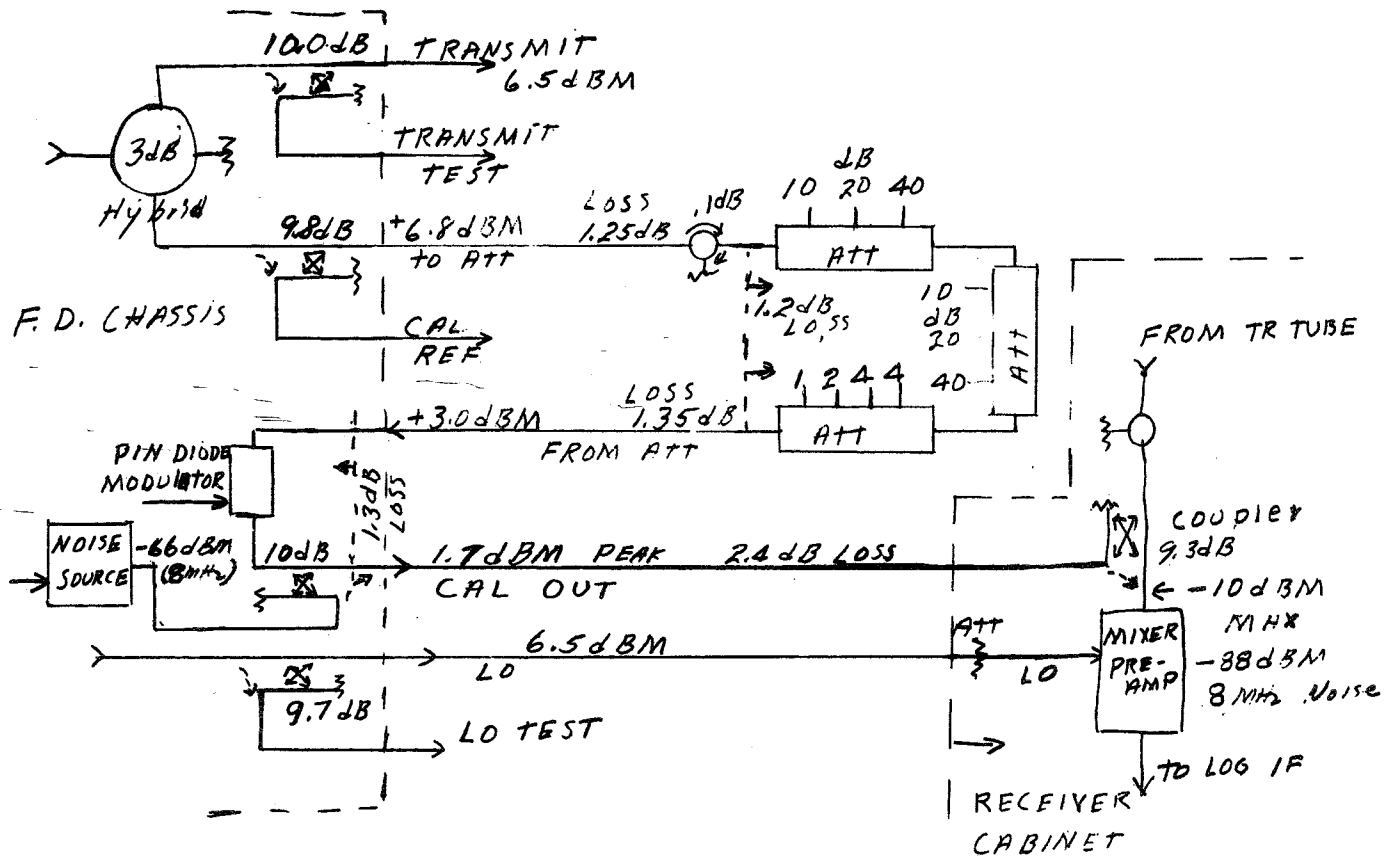 10.0 dB
TRANSMIT
6.5 dBM
3dB
TRANSMIT
TEST
Hybrid
9.8dB
+6.8dBM
to ATT
LOSS
1.25dB
.1dB
dB
10 20 40
ATT
F. D. CHASSIS
CAL
REF
1.2dB
LOSS
10
dB
20
40
ATT
FROM TR TUBE
1 2 4 4
ATT
LOSS
1.35dB
+3.0dBM
FROM ATT
PIN DIODE
MODULATOR
1.3dB
LOSS
NOISE
SOURCE
-66dBM
(8MHz)
10dB
1.7dBM PEAK
2.4 dB LOSS
CAL OUT
COUPLER
9.3dB
-10dBM
MAX
-88dBM
8 MHz Noise
MIXER
PRE-
AMP
6.5dBM
LO
ATT
LO
9.7dB
LO TEST
TO LOG IF
RECEIVER
CABINET